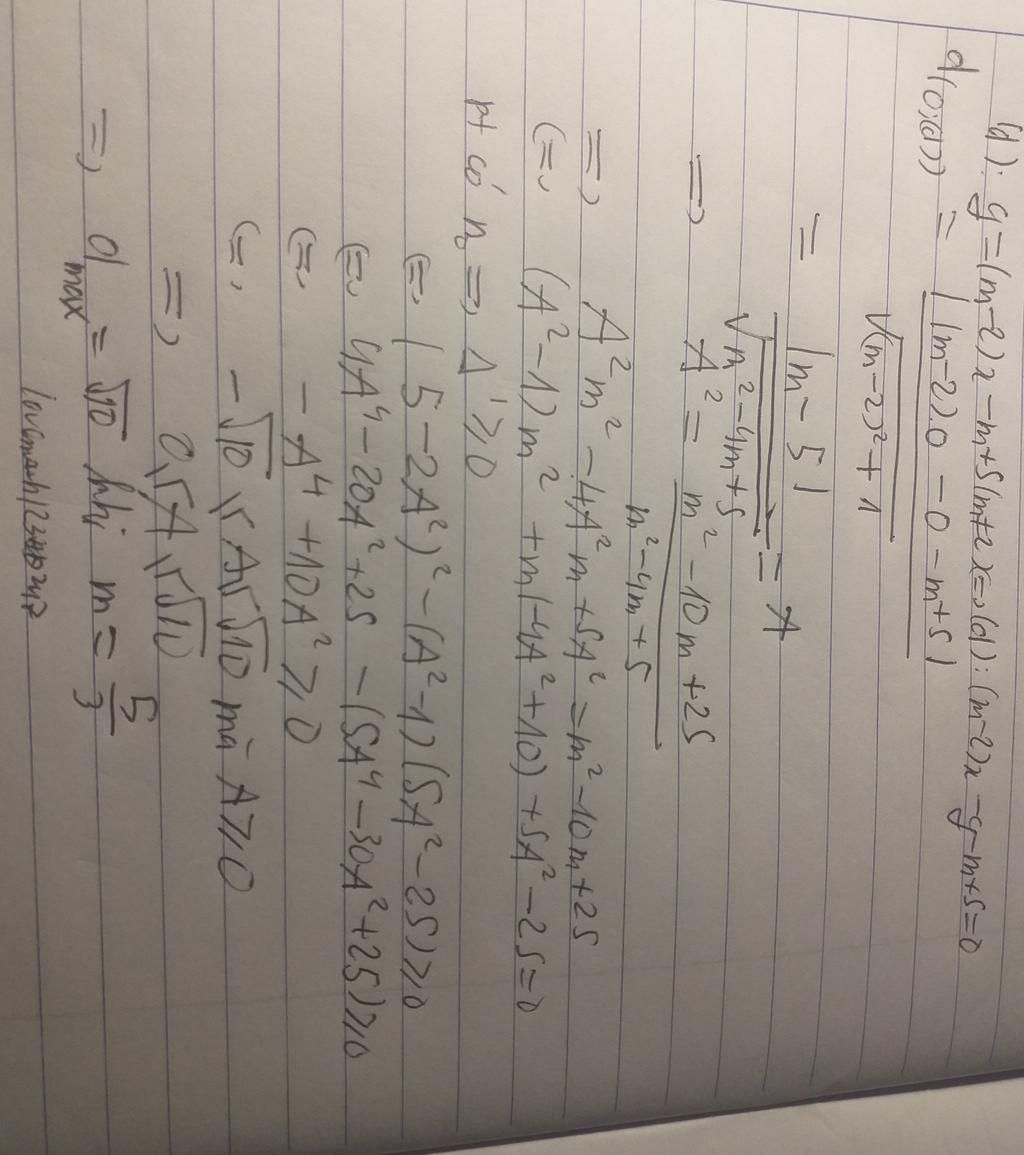 (d): y=(m-2)x-m+5 (m≠2) <=> (d): (m-2)x-y-m+5=0
d(0;(d)) = |(m-2)0-0-m+5| / √((m-2)²+1)
= |m-5| / √(m²-4m+5) = A
=> A² = (m²-10m+25) / (m²-4m+5)
=> A²m²-4A²m+5A²=m²-10m+25
<=> (A²-1)m²+m(-4A²+10)+5A²-25=0
pt có n₀ => Δ'≥0
<=> (5-2A²)²-(A²-1)(5A²-25)≥0
<=> 4A⁴-20A²+25-(5A⁴-30A²+25)≥0
<=> -A⁴+10A²≥0
<=> -√10≤A≤√10 mà A≥0
=> 0≤A≤√10
=> d max = √10 khi m = 5/3